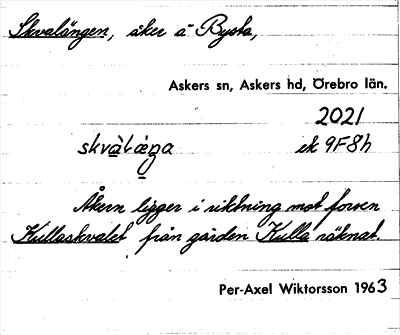 Skvalängen, åker å Bysta,
Askers sn, Askers hd, Örebro län.
2021
skvàlæŋa ek 9F8h
Åkern ligger i riktning mot forsen
Kullaskvalet från gården Kulla räknat.
Per-Axel Wiktorsson 1963